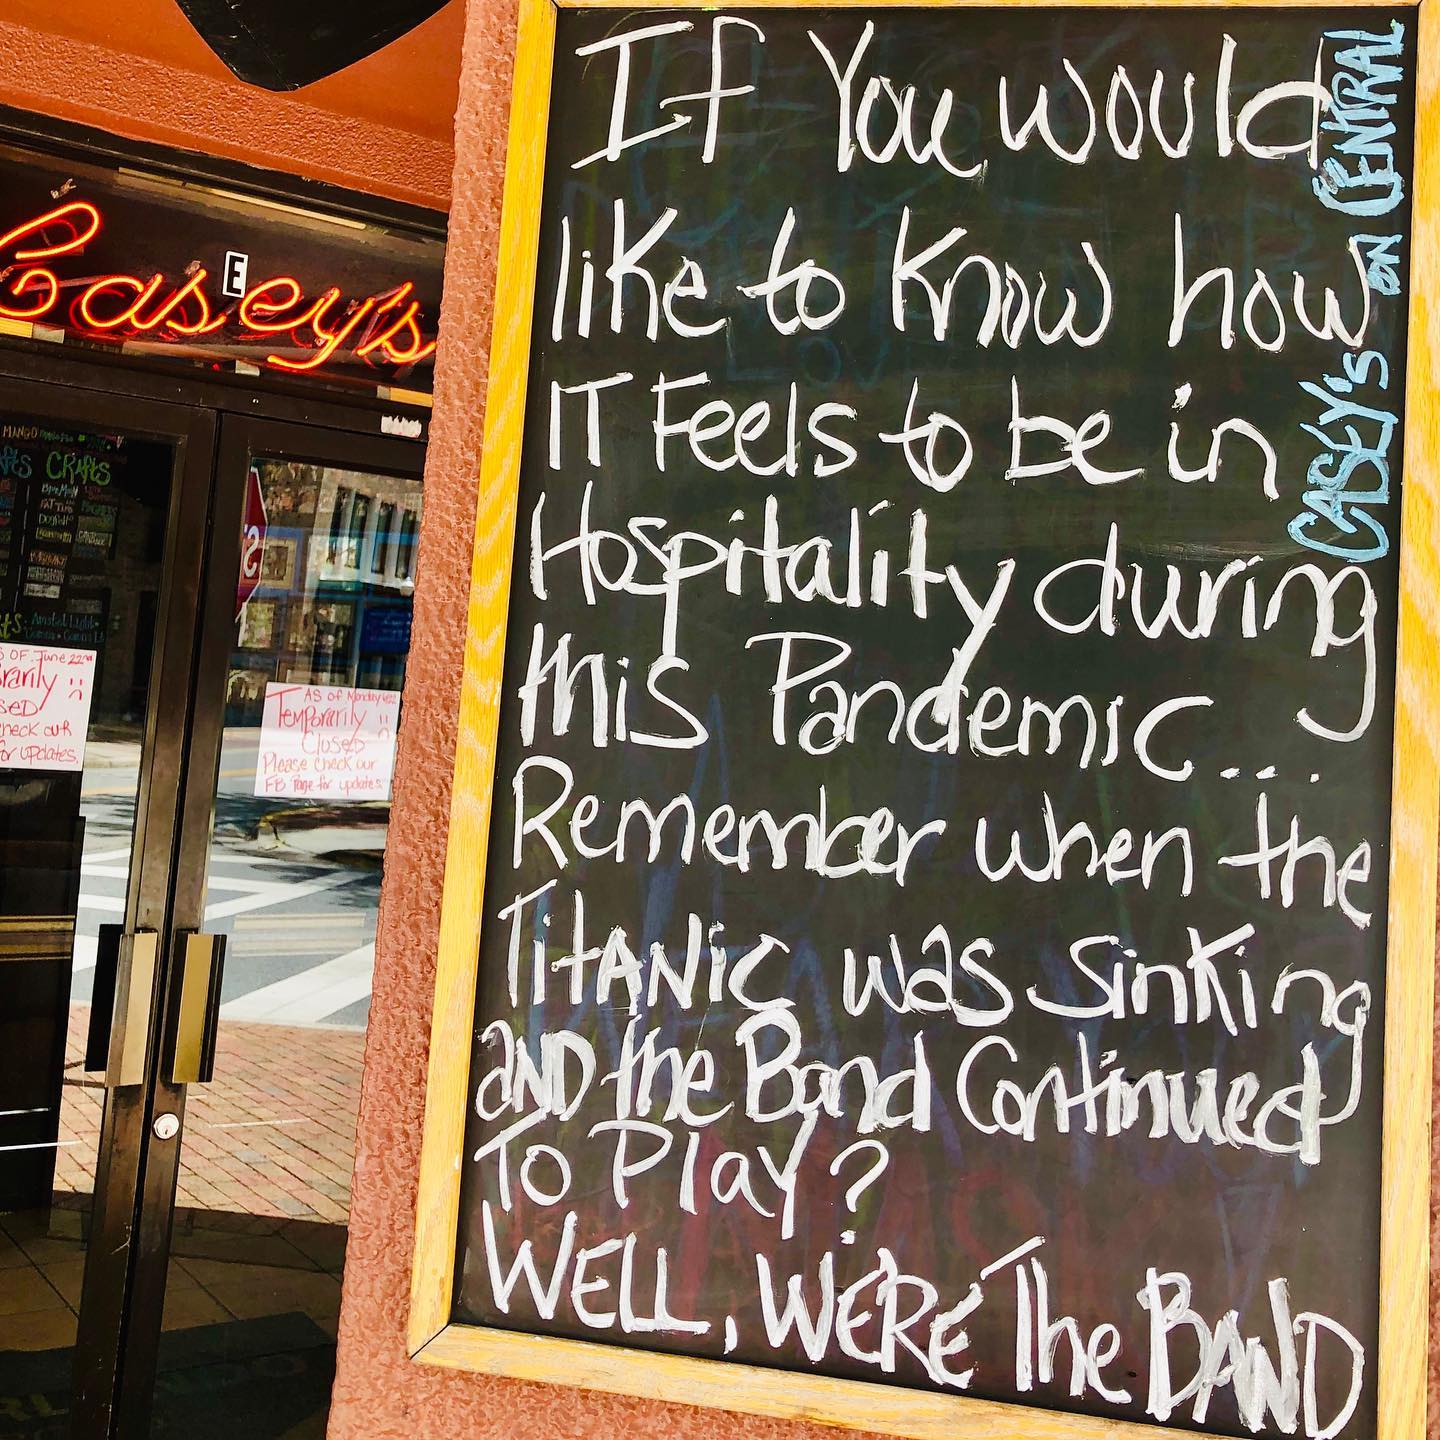 If You would
like to Know how
IT Feels to be in
Hospitality during
this Pandemic...
Remember when the
TitANic was SinKing
aND the Band Continued
To Play?
WELL, WE'RE The BAND
CASEY's on CENTRAL
Casey's
E
MANGO
CRAfts
S OF June 22nd
rarily
SED
check our
for updates.
AS OF Monday
Temporarily
Closed
Please check our
FB Page for updates